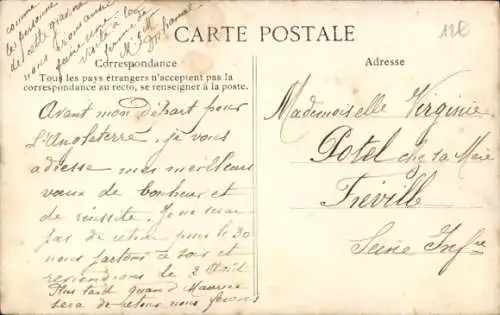 comme
la personne
de cette
nous
faire une
visite à la
CARTE POSTALE
Correspondance
Tous les pays étrangers n'acceptent pas la
correspondance au recto, se renseigner à la poste.
Adresse
Avant mon Départ pour
l'Angleterre, je vous
adresse mes meilleurs
vœux de bonheur et
de réussite. Je ne serai
pas de retour pour le 30
nous partons ce soir et
reviendrons le 2 Août
Plus tard quand Maurice
sera de retour nous ferons
Mademoiselle Virginie
Potel chez sa Mère
Fréville
Seine Infre
12€